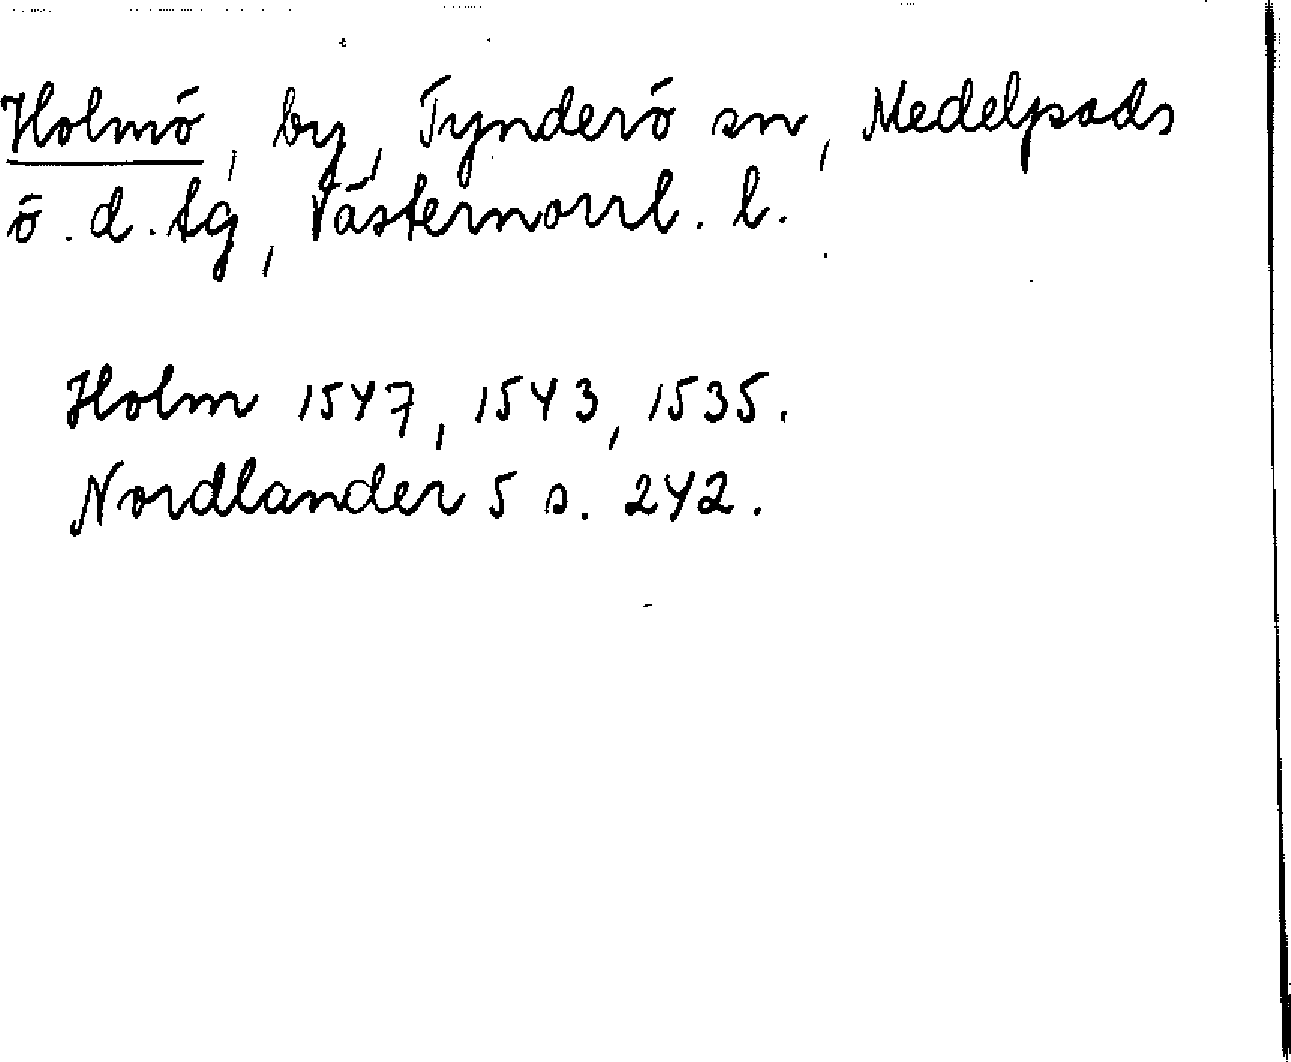 Holmö, by, Tynderö sn, Medelpads
ö. d. tg, Västernorrl. l.
Holm 1547, 1543, 1535.
Nordlander 5 s. 242.